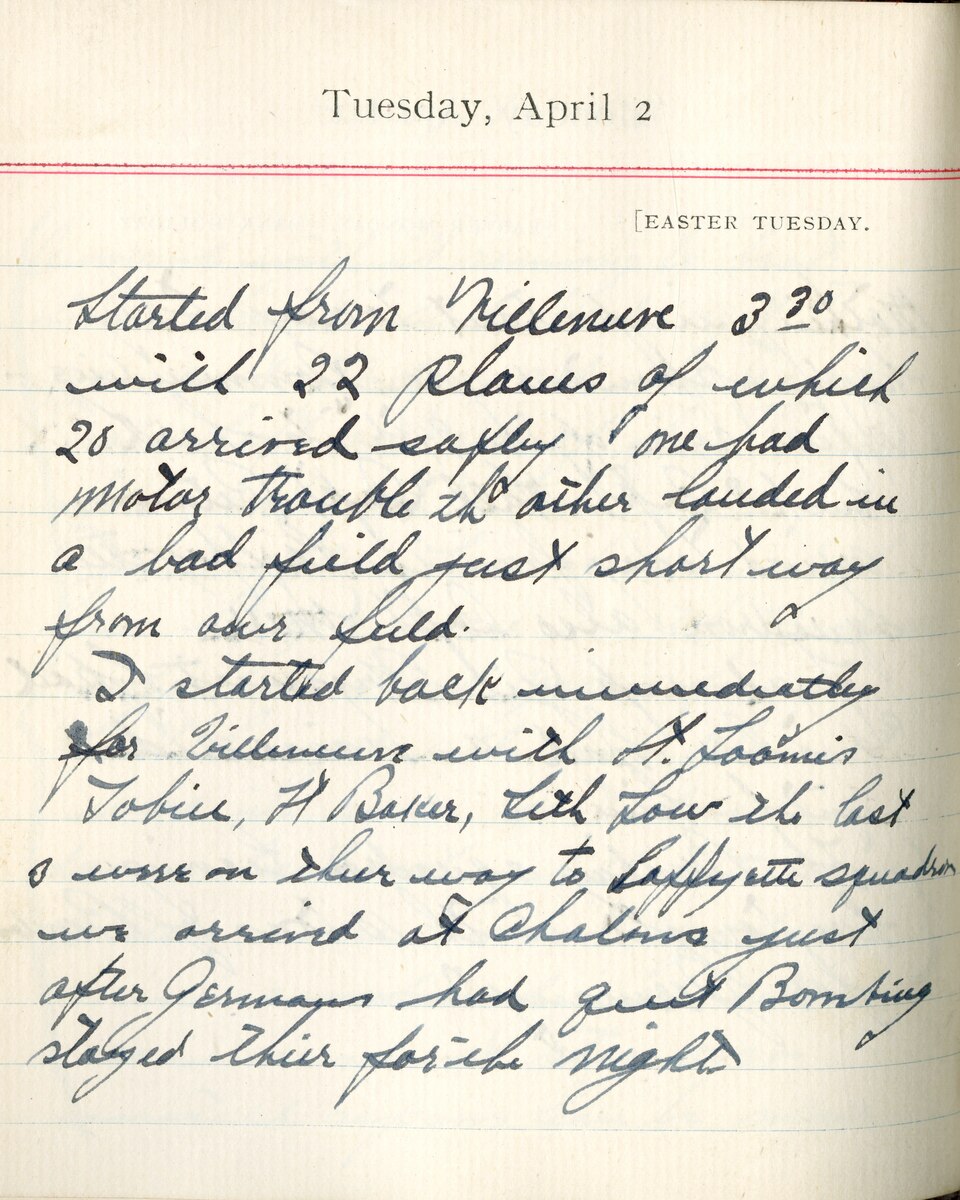 Tuesday, April 2
[EASTER TUESDAY.
Started from Villenuve 3 30
with 22 planes of which
20 arrived saftly one had
motor trouble th other landed in
a bad field just short way
from our field.
I started back immediatley
for Villenuve with Lt. Loomis
Tobin, Lt Baker, Low the last
3 were on thier way to Laffyette squadron
we arrived at Chalons just
after Germans had quit Bombing
stayed thier for the night